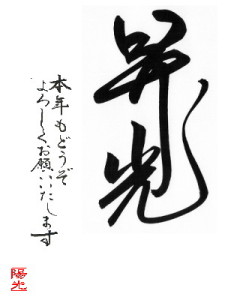 光
本年もどうぞ
よろしくお願いいたします
陽光